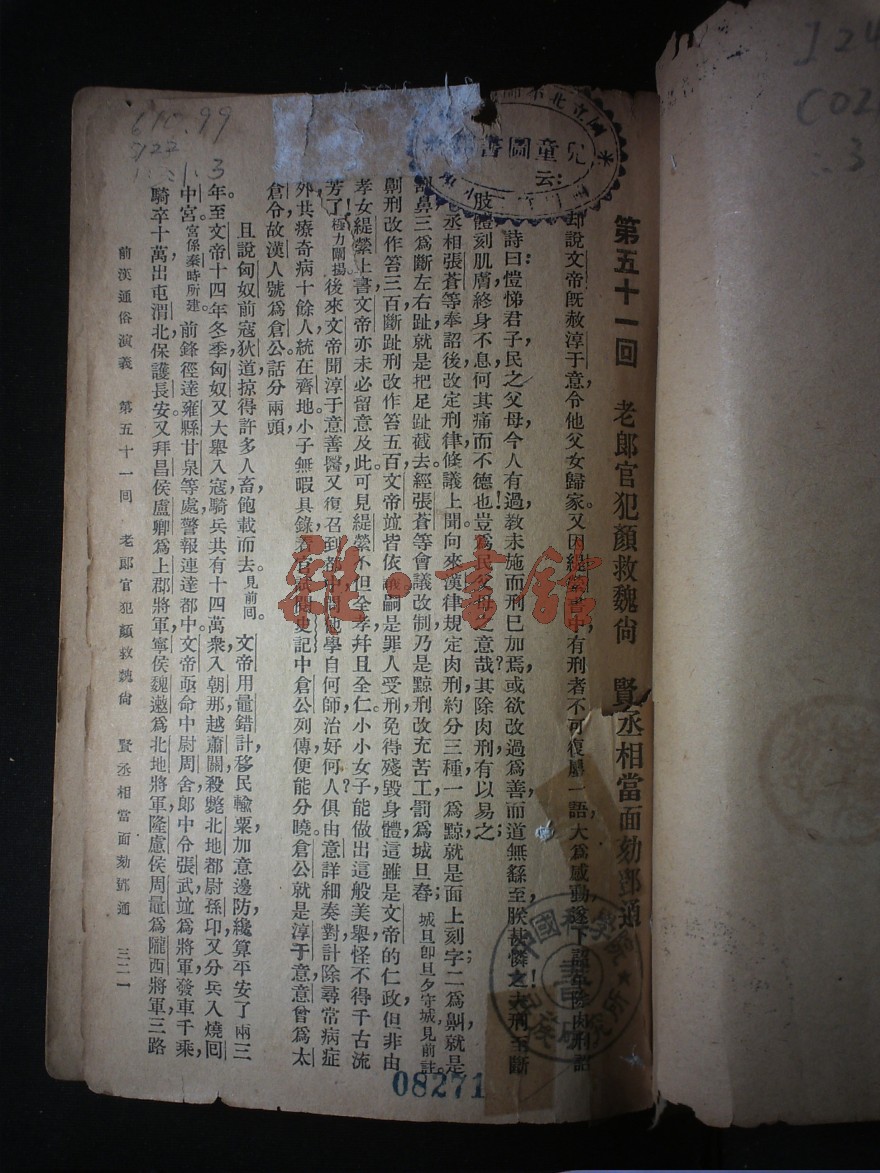 第五十一回　老郎官犯顏救魏尙　賢丞相當面劾鄧通
却說文帝旣赦淳于意，令他父女歸家。又因緹縈書中，有刑者不可復屬一語，大爲感動，遂下詔除肉刑。詔
詩曰：愷悌君子，民之父母，今人有過，敎未施而刑已加焉，或欲改過爲善，而道無繇至，朕甚憐之！夫刑至斷
肢體，刻肌膚，終身不息，何其痛而不德也！豈爲民父母之意哉？其除肉刑，有以易之；
丞相張蒼等奉詔後，改定刑律，條議上聞。向來漢律規定肉刑，約分三種，一爲黥，就是面上刻字；二爲劓，就是
割鼻；三爲斷左右趾，就是把足趾截去。經張蒼等會議改制，乃是黥刑改充苦工，罰爲城旦舂；城旦卽旦夕守城，見前註。
劓刑改作笞三百，斷趾刑改作笞五百，文帝竝皆依議。嗣是罪人受刑，免得殘毀身體，這雖是文帝的仁政，但非由
孝女緹縈上書，文帝亦未必留意及此。可見緹縈不但全孝，幷且全仁。小小女子，能做出這般美舉，怪不得千古流
芳了！極力闡揚。後來文帝聞淳于意善醫，又復召到都中，問他學自何師，治好何人？俱由意詳細奏對，計除尋常病症
外，共療奇病十餘人，統在齊地。小子無暇具錄，看官試閱史記中倉公列傳，便能分曉。倉公就是淳于意，意曾爲太
倉令，故漢人號爲倉公。話分兩頭，
且說匈奴前寇狄道，掠得許多人畜，飽載而去。見前回。文帝用鼂錯計，移民輸粟，加意邊防，纔算平安了兩三
年。至文帝十四年冬季，匈奴又大舉入寇，騎兵共有十四萬衆，入朝那，越蕭關，殺斃北地都尉孫卬，又分兵入燒回
中宮。宮係秦時所建。前鋒徑達雍縣甘泉等處，警報連達都中。文帝亟命中尉周舍，郎中令張武，竝爲將軍，發車千乘，
騎卒十萬，出屯渭北，保護長安。又拜昌侯盧卿爲上郡將軍，甯侯魏遫爲北地將軍，隆慮侯周竈爲隴西將軍，三路
前漢通俗演義　第五十一回　老郎官犯顏救魏尙　賢丞相當面劾鄧通　三二一
兒童圖書
08271
雜·書館